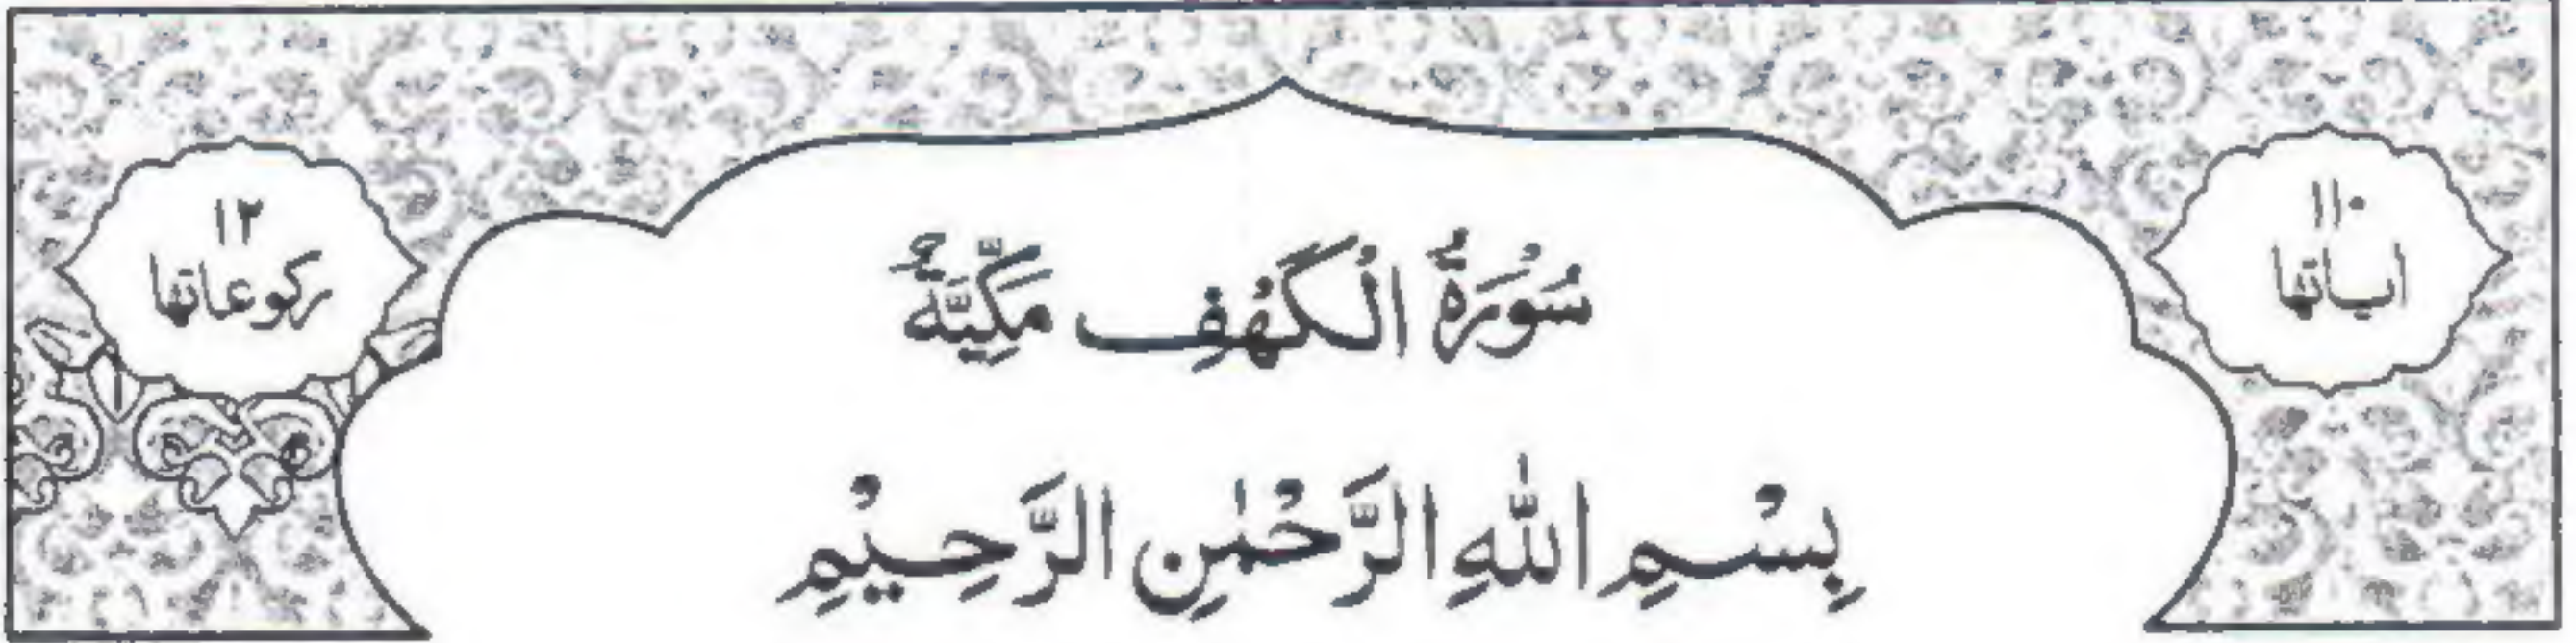 ١١٠
اٰیاتها
سُوْرَةُ الْكَهْفِ مَكِّيَّةٌ
١٢
رکوعاتها
بِسْمِ اللّٰهِ الرَّحْمٰنِ الرَّحِيْمِ